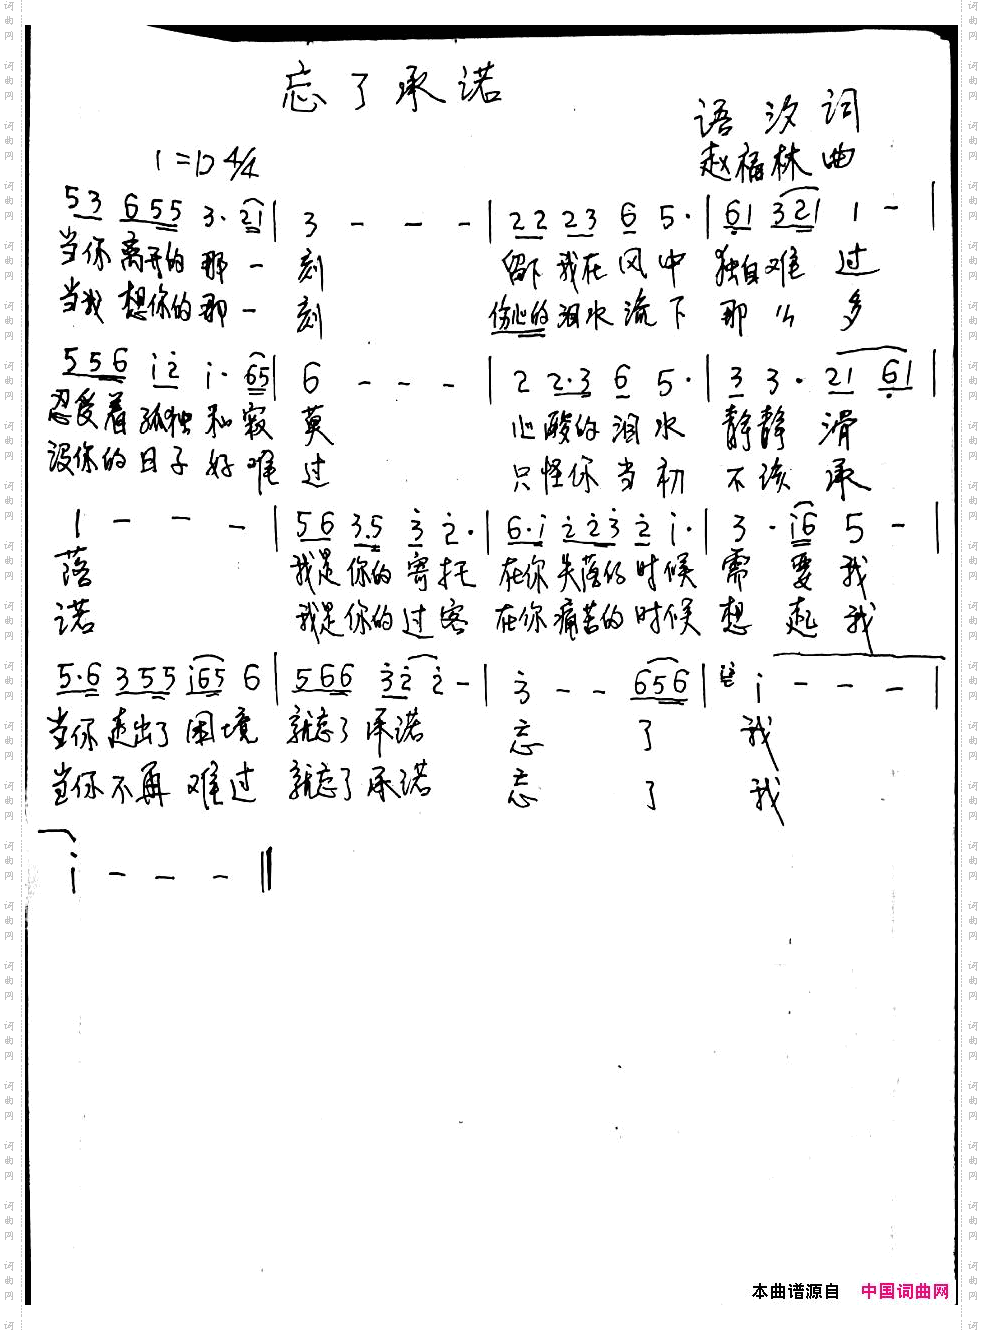 忘了承诺
语汐词
1=D 4/4
赵福林曲
53 655 3· 21 | 3 - - - | 22 23 6 5· | 61 321 1 - |
当你离开的那一刻 留下我在风中 独自难过
当我想你的那一刻 伤心的泪水流下那么多
556 i2 i· 65 | 6 - - - | 2 2·3 6 5· | 3 3· 21 61 |
忍受着孤独和寂莫 心酸的泪水 静静滑
没你的日子好难过 只怪你当初 不该承
1 - - - | 56 3.5 3 2· | 6·i 223 2 i· | 3· i6 5 - |
落 我是你的寄托 在你失落的时候 需要我
诺 我是你的过客 在你痛苦的时候 想起我
5·6 355 i65 6 | 566 32 2 - | 3 - - 656 | i - - - |
当你走出了困境 就忘了承诺 忘了我
当你不再难过 就忘了承诺 忘了我
i - - - ‖
本曲谱源自 中国词曲网